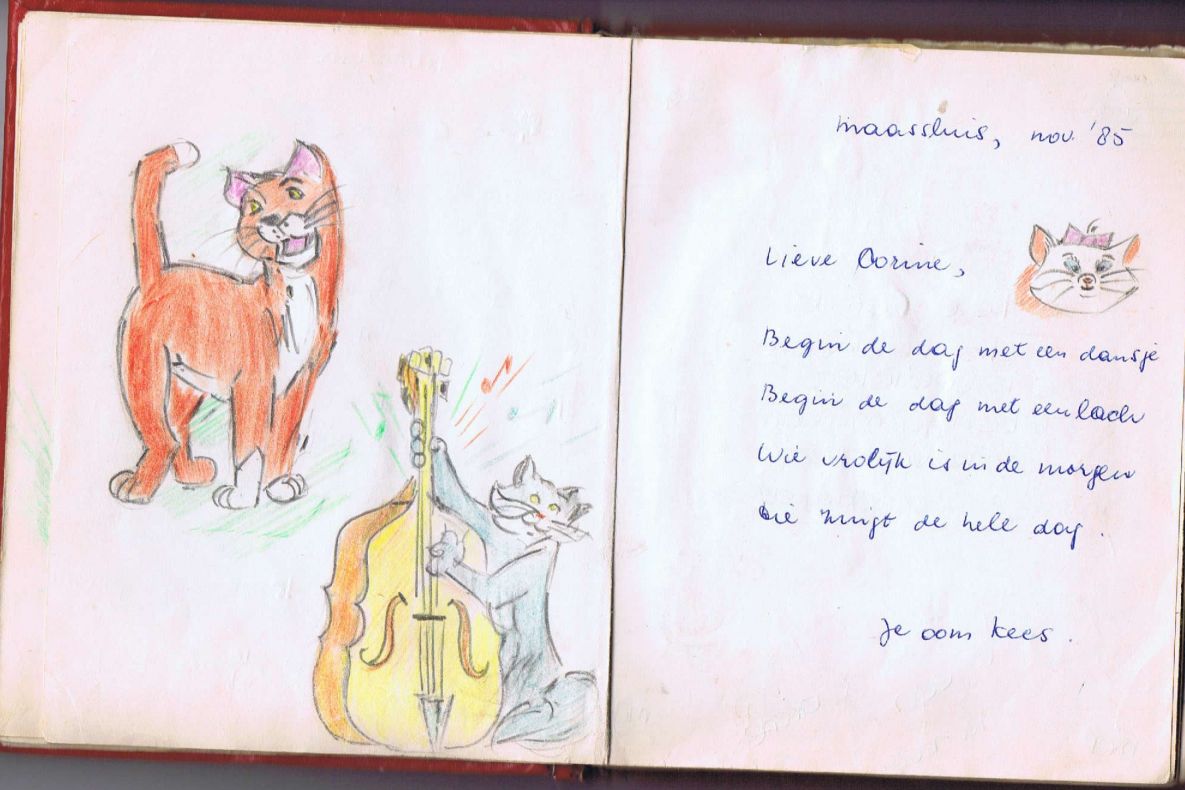 Maassluis, nov. '85
Lieve Corine,
Begin de dag met een dansje
Begin de dag met een lach
Wie vrolijk is in de morgen
Die zingt de hele dag.
Je oom Kees.